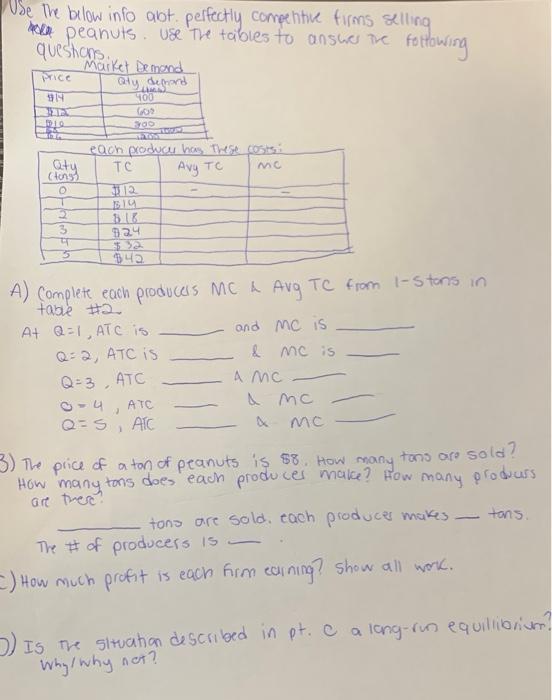 Use The below info abt. perfectly competitive firms selling
peanuts. Use The tables to answer The following
questions.
Market Demand
Price Qty demand (tons)
$14 400
$12 600
$10 800
each producer has These costs:
Qty (tons) TC Avg TC MC
0 $12 - -
1 $14
2 $18
3 $24
4 $32
5 $42
A) Complete each producers MC & Avg TC from 1-5 tons in
table #2
At Q=1, ATC is ____ and MC is ____
Q=2, ATC is ____ & MC is ____
Q=3, ATC ____ & MC ____
Q=4, ATC ____ & MC ____
Q=5, ATC ____ & MC ____
3) The price of a ton of peanuts is $8. How many tons are sold?
How many tons does each producer make? How many producers
are there?
____ tons are sold. each producer makes __ tons.
The # of producers is __.
C) How much profit is each firm earning? Show all work.
D) Is The situation described in pt. C a long-run equilibrium?
Why/why not?